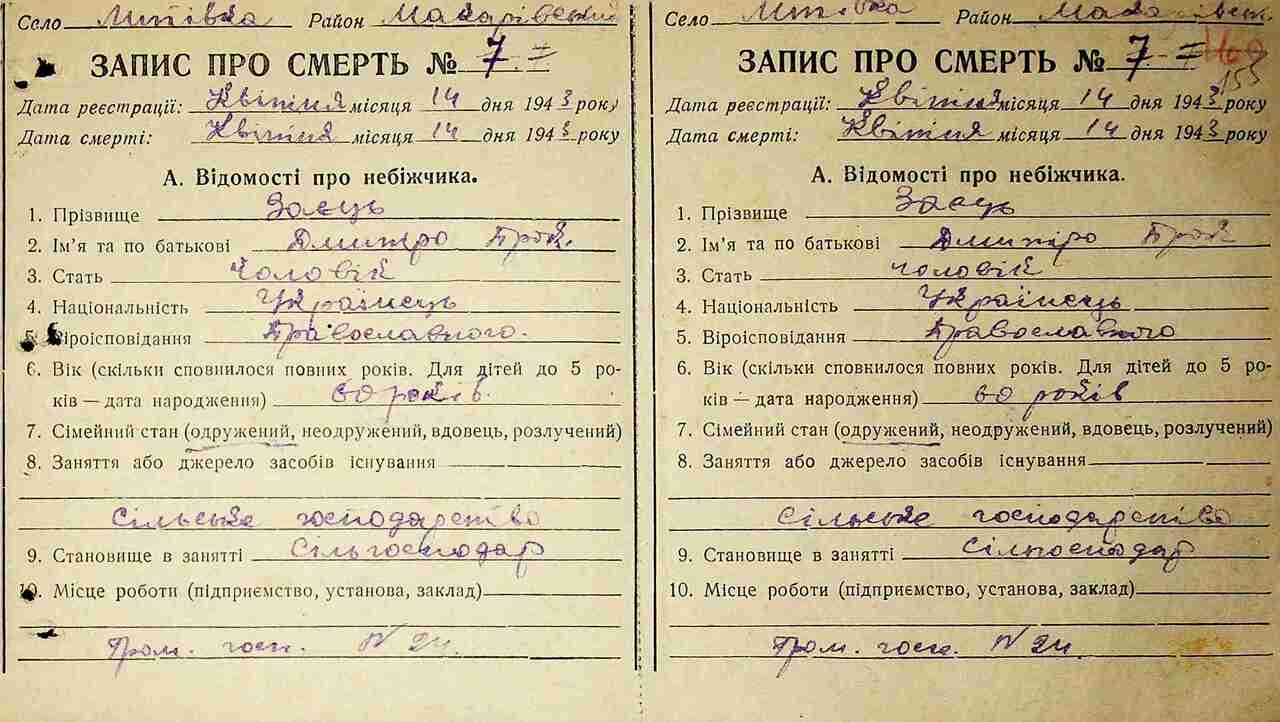 Село Липівка Район Макарівський
ЗАПИС ПРО СМЕРТЬ № 7
Дата реєстрації: Квітня місяця 14 дня 1943 року
Дата смерті: Квітня місяця 14 дня 1943 року
А. Відомості про небіжчика.
1. Прізвище Заєць
2. Ім'я та по батькові Дмитро Трох.
3. Стать чоловік
4. Національність Українець
5. Віроісповідання Православного.
6. Вік (скільки сповнилося повних років. Для дітей до 5 ро-
ків — дата народження) 60 років.
7. Сімейний стан (одружений, неодружений, вдовець, розлучений)
8. Заняття або джерело засобів існування
Сільське господарство
9. Становище в занятті Сільгосподар
10. Місце роботи (підприємство, установа, заклад)
Гром. госп. N 24
Село Липівка Район Макарівськ.
ЗАПИС ПРО СМЕРТЬ № 7 160
155
Дата реєстрації: Квітня місяця 14 дня 1943 року
Дата смерті: Квітня місяця 14 дня 1943 року
А. Відомості про небіжчика.
1. Прізвище Заєць
2. Ім'я та по батькові Дмитро Трох
3. Стать чоловік
4. Національність Українець
5. Віроісповідання Православного
6. Вік (скільки сповнилося повних років. Для дітей до 5 ро-
ків — дата народження) 60 років
7. Сімейний стан (одружений, неодружений, вдовець, розлучений)
8. Заняття або джерело засобів існування
Сільське господарство
9. Становище в занятті Сілгосподар
10. Місце роботи (підприємство, установа, заклад)
Гром. госп. N 24.